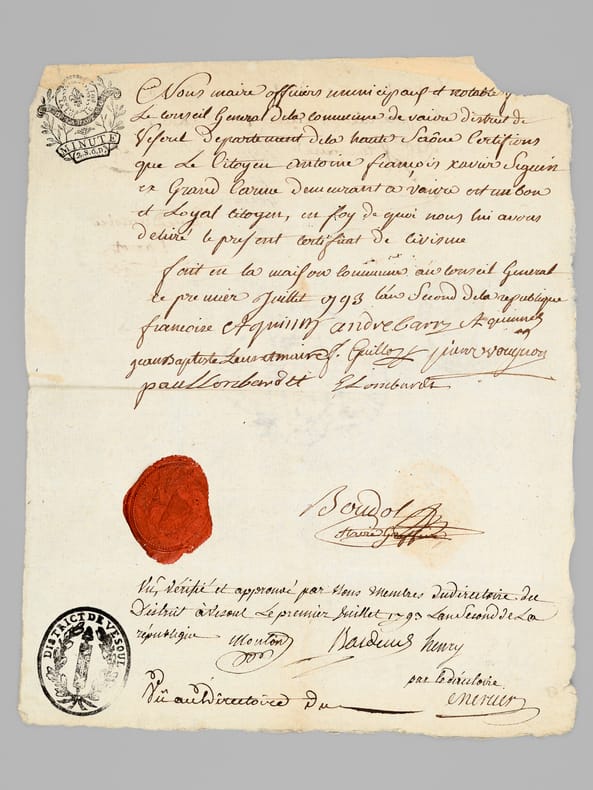 MINUTE
2. S. 6. D.
Nous maire officiers municipaux et notable
Le Conseil General dela commune de vaivre district de
Vesoul Departement dela haute Saône Certifions
que Le Citoyen antoine françois xavier Seguin
ex Grand Carme demeurant à vaivre est un bon
et Loyal citoyen, en foy de quoi nous lui avons
délivré le présent certificat de civisme
fait en la maison commune au conseil General
ce premier Juillet 1793 lan Second dela republique
françoise
jean Baptiste maire J. Guilloz
paul Lombardet E Lombardet
Boudot
Vu, Vérifié et approuvé par Nous Membres du directoire du
District de vesoul Le premier Juillet 1793 Lan Second de La
république Mouton henry
par le directoire
DISTRICT DE VESOUL
Vû au Directoire du mercier